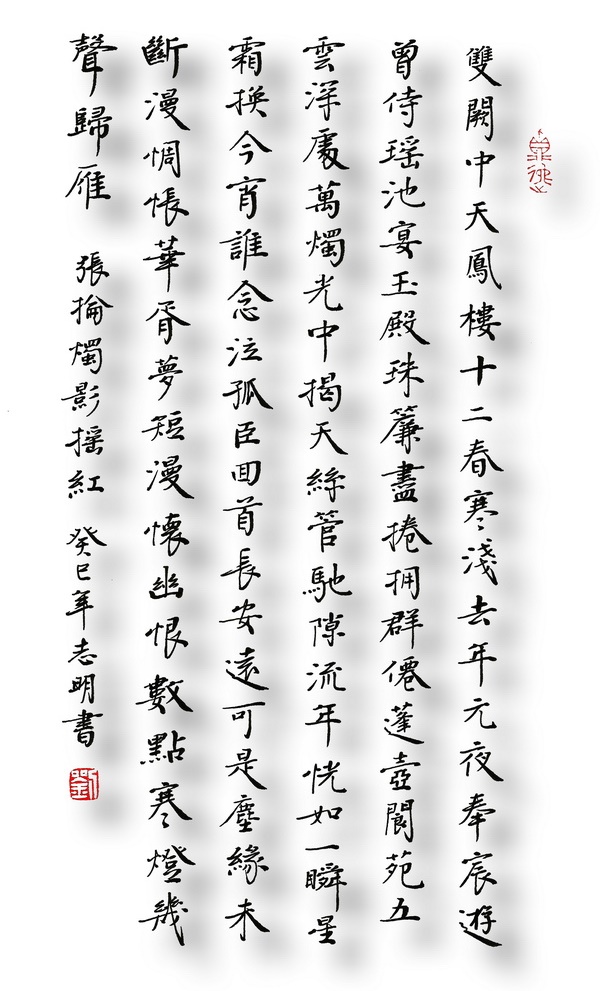 雙闕中天鳳樓十二春寒淺去年元夜奉宸遊
曾侍瑤池宴玉殿珠簾盡捲拥群僊蓬壺閬苑五
雲深處萬燭光中揭天絲管馳隙流年恍如一瞬星
霜換今宵誰念泣孤臣回首長安遠可是塵緣未
斷漫惆悵華胥夢短漫懷幽恨數點寒燈幾
聲歸雁 張掄燭影搖紅 癸巳年志明書
劉